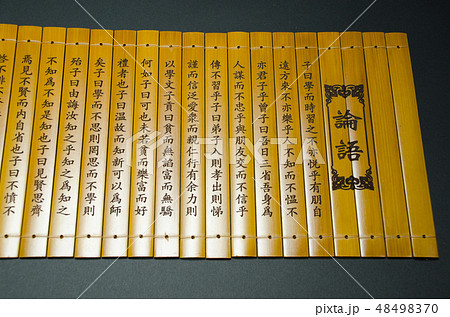 論語
子曰學而時習之不亦悅乎有朋自
遠方來不亦樂乎人不知而不慍不
亦君子乎曾子曰吾日三省吾身為
人謀而不忠乎與朋友交而不信乎
傳不習乎子曰弟子入則孝出則悌
謹而信泛愛衆而親仁行有余力則
以學文子貢曰貧而無諂富而無驕
何如子曰可也未若貧而樂富而好
禮者也子曰溫故而知新可以為師
矣子曰學而不思則罔思而不學則
殆子曰由誨汝知之乎知之為知之
不知為不知是知也子曰見賢思齊
焉見不賢而內自省也子曰不憤不
pixta.jp - 48498370